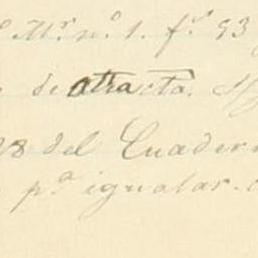 Mr. no. 1. fs. 93
de otra cta.
28 del Cuader
pa igualar.